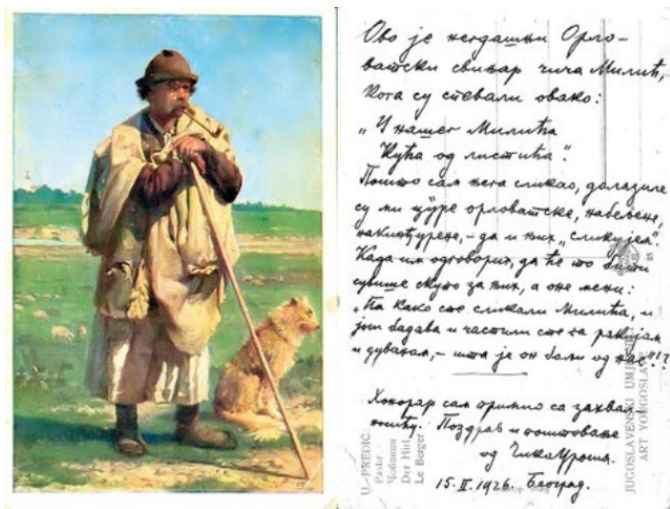 Ово је негдашњи Орло-
ватски свињар чича Милић,
кога су певали овако:
„У нашег Милића
Кућа од листића“.
Пошто сам њега сликао, долазиле
су ми цуре орловатске, набељене,
накинђурене, – да и њих „сликујем“.
Када им одговорих, да ће то бити
сувише скупо за њих, а оне мени:
„Па како сте сликали Милића, и
још бадава и частили сте га ракијом
и дуваном, – шта је он бољи од нас“!?
Хонорар сам примио са захвал
ношћу. Поздрав и поштовање
од Чика Уроша.
15. II. 1926. Београд.
U. PREDIĆ
Pastir
Чобанин
Der Hirt
Le Berger
JUGOSLAVENSKI
ART YOUGOSLA